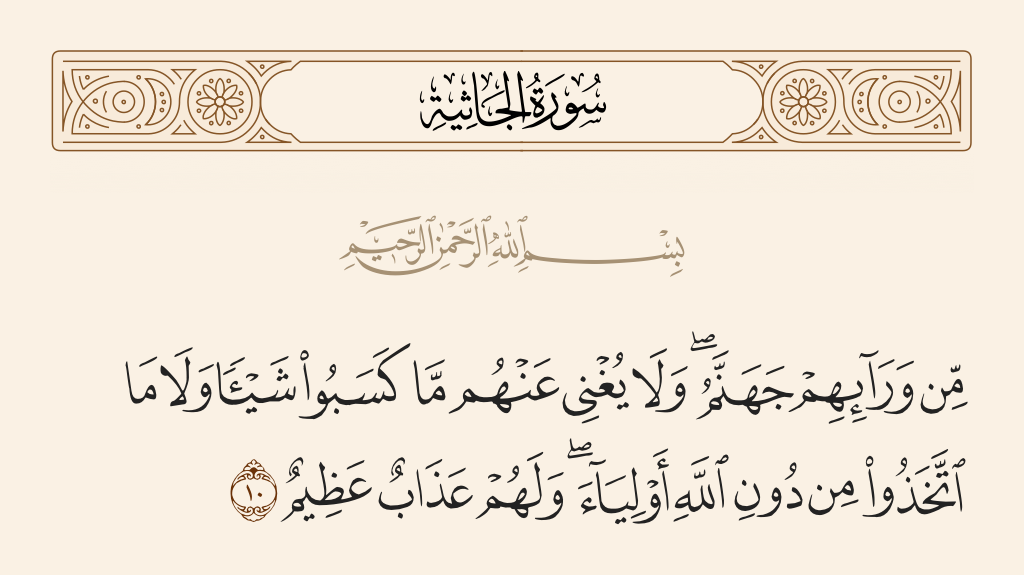 سُورَةُ الجَاثِيَةِ
بِسْمِ ٱللَّهِ ٱلرَّحْمَٰنِ ٱلرَّحِيمِ
مِّن وَرَآئِهِمْ جَهَنَّمُ ۖ وَلَا يُغْنِى عَنْهُم مَّا كَسَبُوا۟ شَيْـًٔا وَلَا مَا
ٱتَّخَذُوا۟ مِن دُونِ ٱللَّهِ أَوْلِيَآءَ ۖ وَلَهُمْ عَذَابٌ عَظِيمٌ ١٠